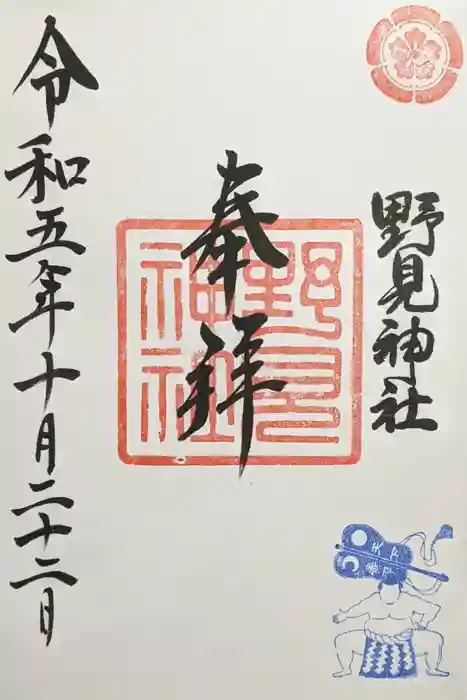 野見神社
奉拝
野見
神社
令和五年十月二十二日